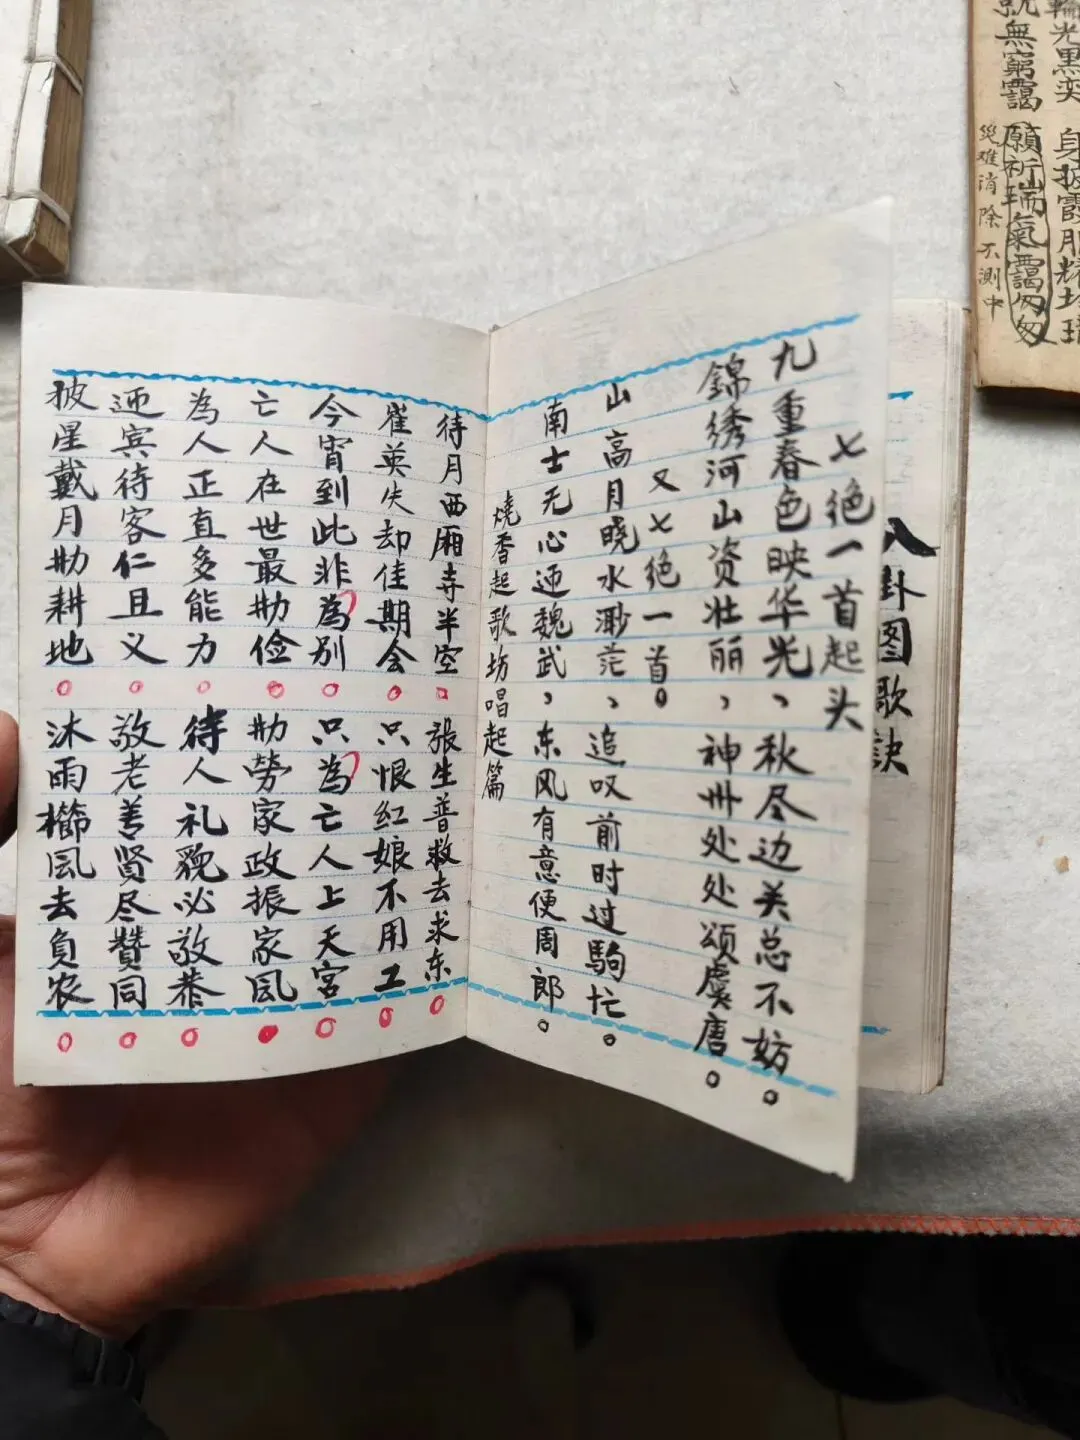 八卦图歌诀
七绝一首起头
九重春色映华光、秋尽边关总不妨。
錦绣河山资壮丽、神州处处颂虞唐。
又七绝一首。
山高月晓水渺茫、追叹前时过駒忙。
南士无心迊魏武、东风有意便周郎。
燒香起歌坊唱起篇
待月西厢寺半空 張生普救去求东
崔英失却佳期会 只恨紅娘不用工
今宵到此非為别 只為亡人上天宮
亡人在世最勤俭 勤勞家政振家风
為人正直多能力 待人礼貌必敬恭
迊宾待客仁且义 敬老善贤尽贊同
披星戴月勤耕地 沐雨櫛风去負农
就無窮靄
願祈瑞氣靄匆匆
災难消除不測中